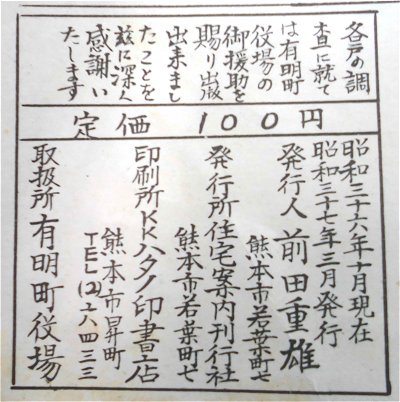 各戸の調
査に就て
は有明町
役場の
御援助を
賜り出版
出来まし
たことを
茲に深く
感謝い
たします
定価 100円
昭和三十六年十月現在
昭和三十七年三月発行
発行人 前田重雄
熊本市若葉町七
発行所 住宅案内刊行社
熊本市若葉町七
印刷所 KKハタノ印書店
熊本市昇町
TEL(2)二八四三三
取扱所 有明町役場